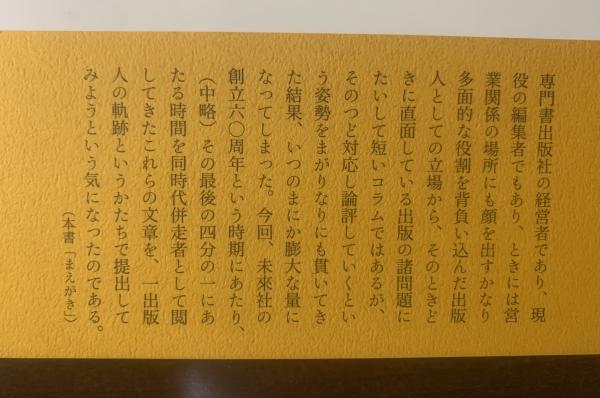 専門書出版社の経営者であり、現
役の編集者でもあり、ときには営
業関係の場所にも顔を出すかなり
多面的な役割を背負い込んだ出版
人としての立場から、そのときど
きに直面している出版の諸問題に
たいして短いコラムではあるが、
そのつど対応し論評していくとい
う姿勢をまがりなりにも貫いてき
た結果、いつのまにか膨大な量に
なってしまった。今回、未來社の
創立六〇周年という時期にあたり、
（中略）その最後の四分の一にあ
たる時間を同時代併走者として閲
してきたこれらの文章を、一出版
人の軌跡というかたちで提出して
みようという気になったのである。
（本書「まえがき」）